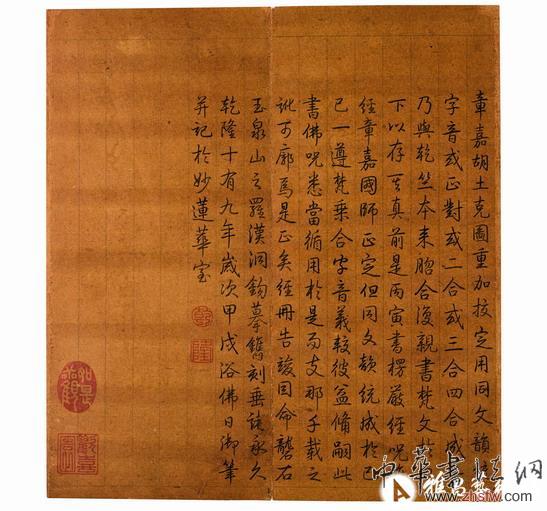 章嘉胡土克圖重加挍定用同文韻
字音或正對或二合或三合四合咸
乃與乾竺本来脗合復親書梵文
下以存其真前是丙寅書楞嚴經咒
經章嘉國師正定但同文韻統成於己
巳一遵梵乗合字音義較彼益備嗣此
書佛咒悉當循用於是而支那千載之
訛可廓焉是正矣經冊告竣因命礱石
玉泉山之羅漢洞鈎摹鐫刻垂諸永久
乾隆十有九年歲次甲戌浴佛日御筆
并記於妙蓮華室
乾
隆
如是觀
歡喜園
www.zhsfw.com